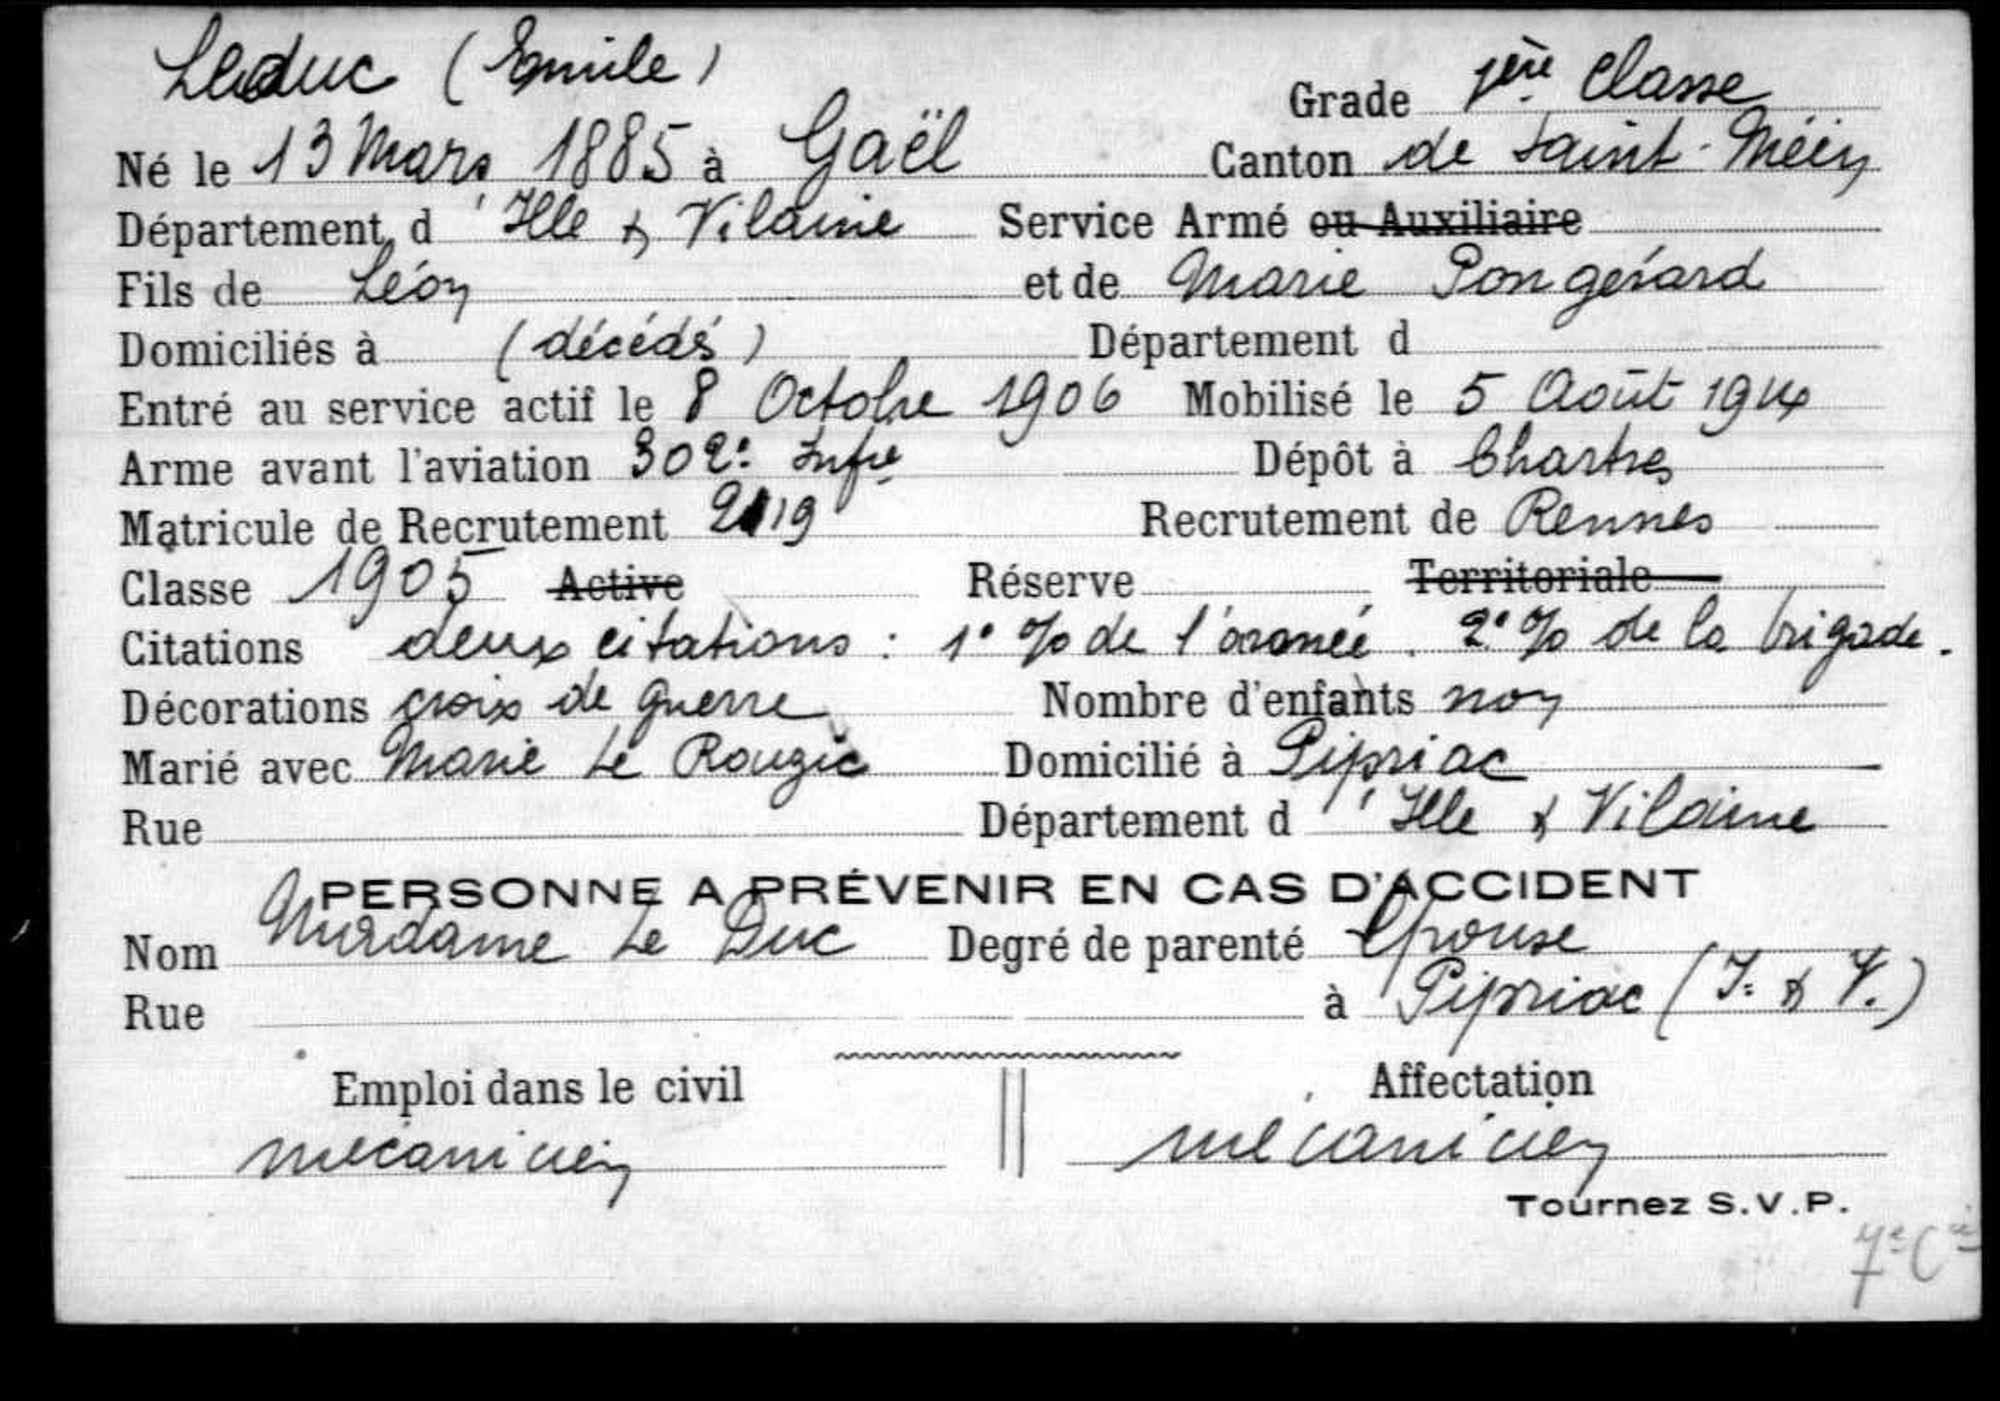 Leduc (Emile)
Grade 1ère Classe
Né le 13 Mars 1885 à Gaël Canton de Saint-Méen
Département d'Ille & Vilaine Service Armé ou Auxiliaire
Fils de Léon et de Marie Pongérard
Domiciliés à (décédés) Département d
Entré au service actif le 8 Octobre 1906 Mobilisé le 5 Août 1914
Arme avant l'aviation 302e Infie Dépôt à Chartres
Matricule de Recrutement 2119 Recrutement de Rennes
Classe 1905 Active Réserve Territoriale
Citations deux citations : 1° % de l'armée . 2° % de la brigade.
Décorations croix de guerre Nombre d'enfants non
Marié avec Marie Le Rouzic Domicilié à Pipriac
Rue Département d'Ille & Vilaine
PERSONNE A PRÉVENIR EN CAS D'ACCIDENT
Nom Madame Le Duc Degré de parenté Epouse
Rue à Pipriac (I. & V.)
Emploi dans le civil Affectation
mécanicien mécanicien
Tournez S.V.P.
7e Cie